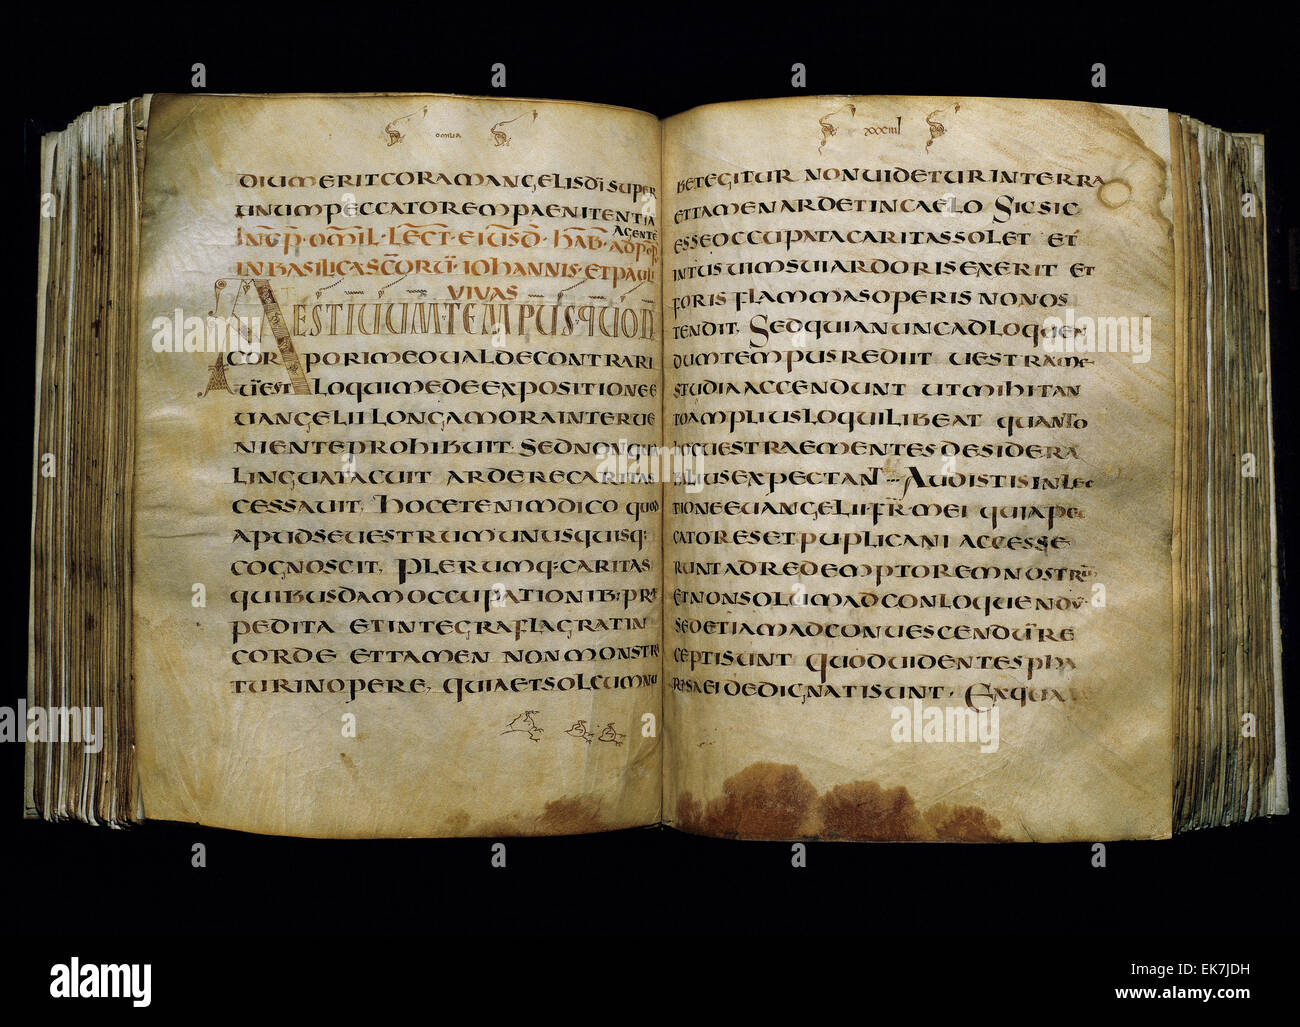 omilia
DIUMERITCORAMANGELISDISUPER
UNUMPECCATOREMPAENITENTIA
AGENTE
IN BASILICASCORU IOHANNIS ET PAULI
VIVAS
AESTIUUMTEMPUSQUOD
CORPORIMEOUALDECONTRARI
UEST LOQUIMEDEEXPOSITIONEE
UANGELIILONGAMORAINTERUE
NIENTEPROHIBUIT SEDNONQUI
LINGUATACUIT ARDERECARITAS
CESSAUIT. HOCETENIMDICO QUOD
APUDSEUESTRUMUNUSQUISQ:
COGNOSCIT. PLERUMQ:CARITAS
QUIBUSDAMOCCUPATIONIB:PRE
PEDITA ETINTEGRAFLAGRATIN
CORDE ETTAMEN NONMONSTRE
TURINOPERE, QUIAETSOLCUMNU
xxxiiii
BETEGITUR NONUIDETURINTERRA
ETTAMENARDETINCAELO SICSIC
ESSEOCCUPATACARITASSOLET ET
INTUSUIMSUIARDORISEXERIT ET
FORIS FLAMMASOPERIS NONOS
TENDIT. SEDQUIANUNCADLOQUEN
DUMTEMPUSREDIIT UESTRAME
STUDIAACCENDUNT UTMIHITAN
TOAMPLIUSLOQUILIBEAT QUANTO
HOCUESTRAEMENTESDESIDERA
BILIUSEXPECTANT AUDISTISINLEC
TIONEEUANGELIIFRMEI QUIAPEC
CATORESETPUPLICANI ACCESSE
RUNTADREDEMPTOREMNOSTRU
ETNONSOLUMADCONLOQUENDU
SEDETIAMADCONUESCENDURE
CEPTISUNT QUODUIDENTESPHA
RISAEIDEDIGNATISUNT. EXQUA
alamy
a
alamy stock photo
EK7JDH
www.alamy.com